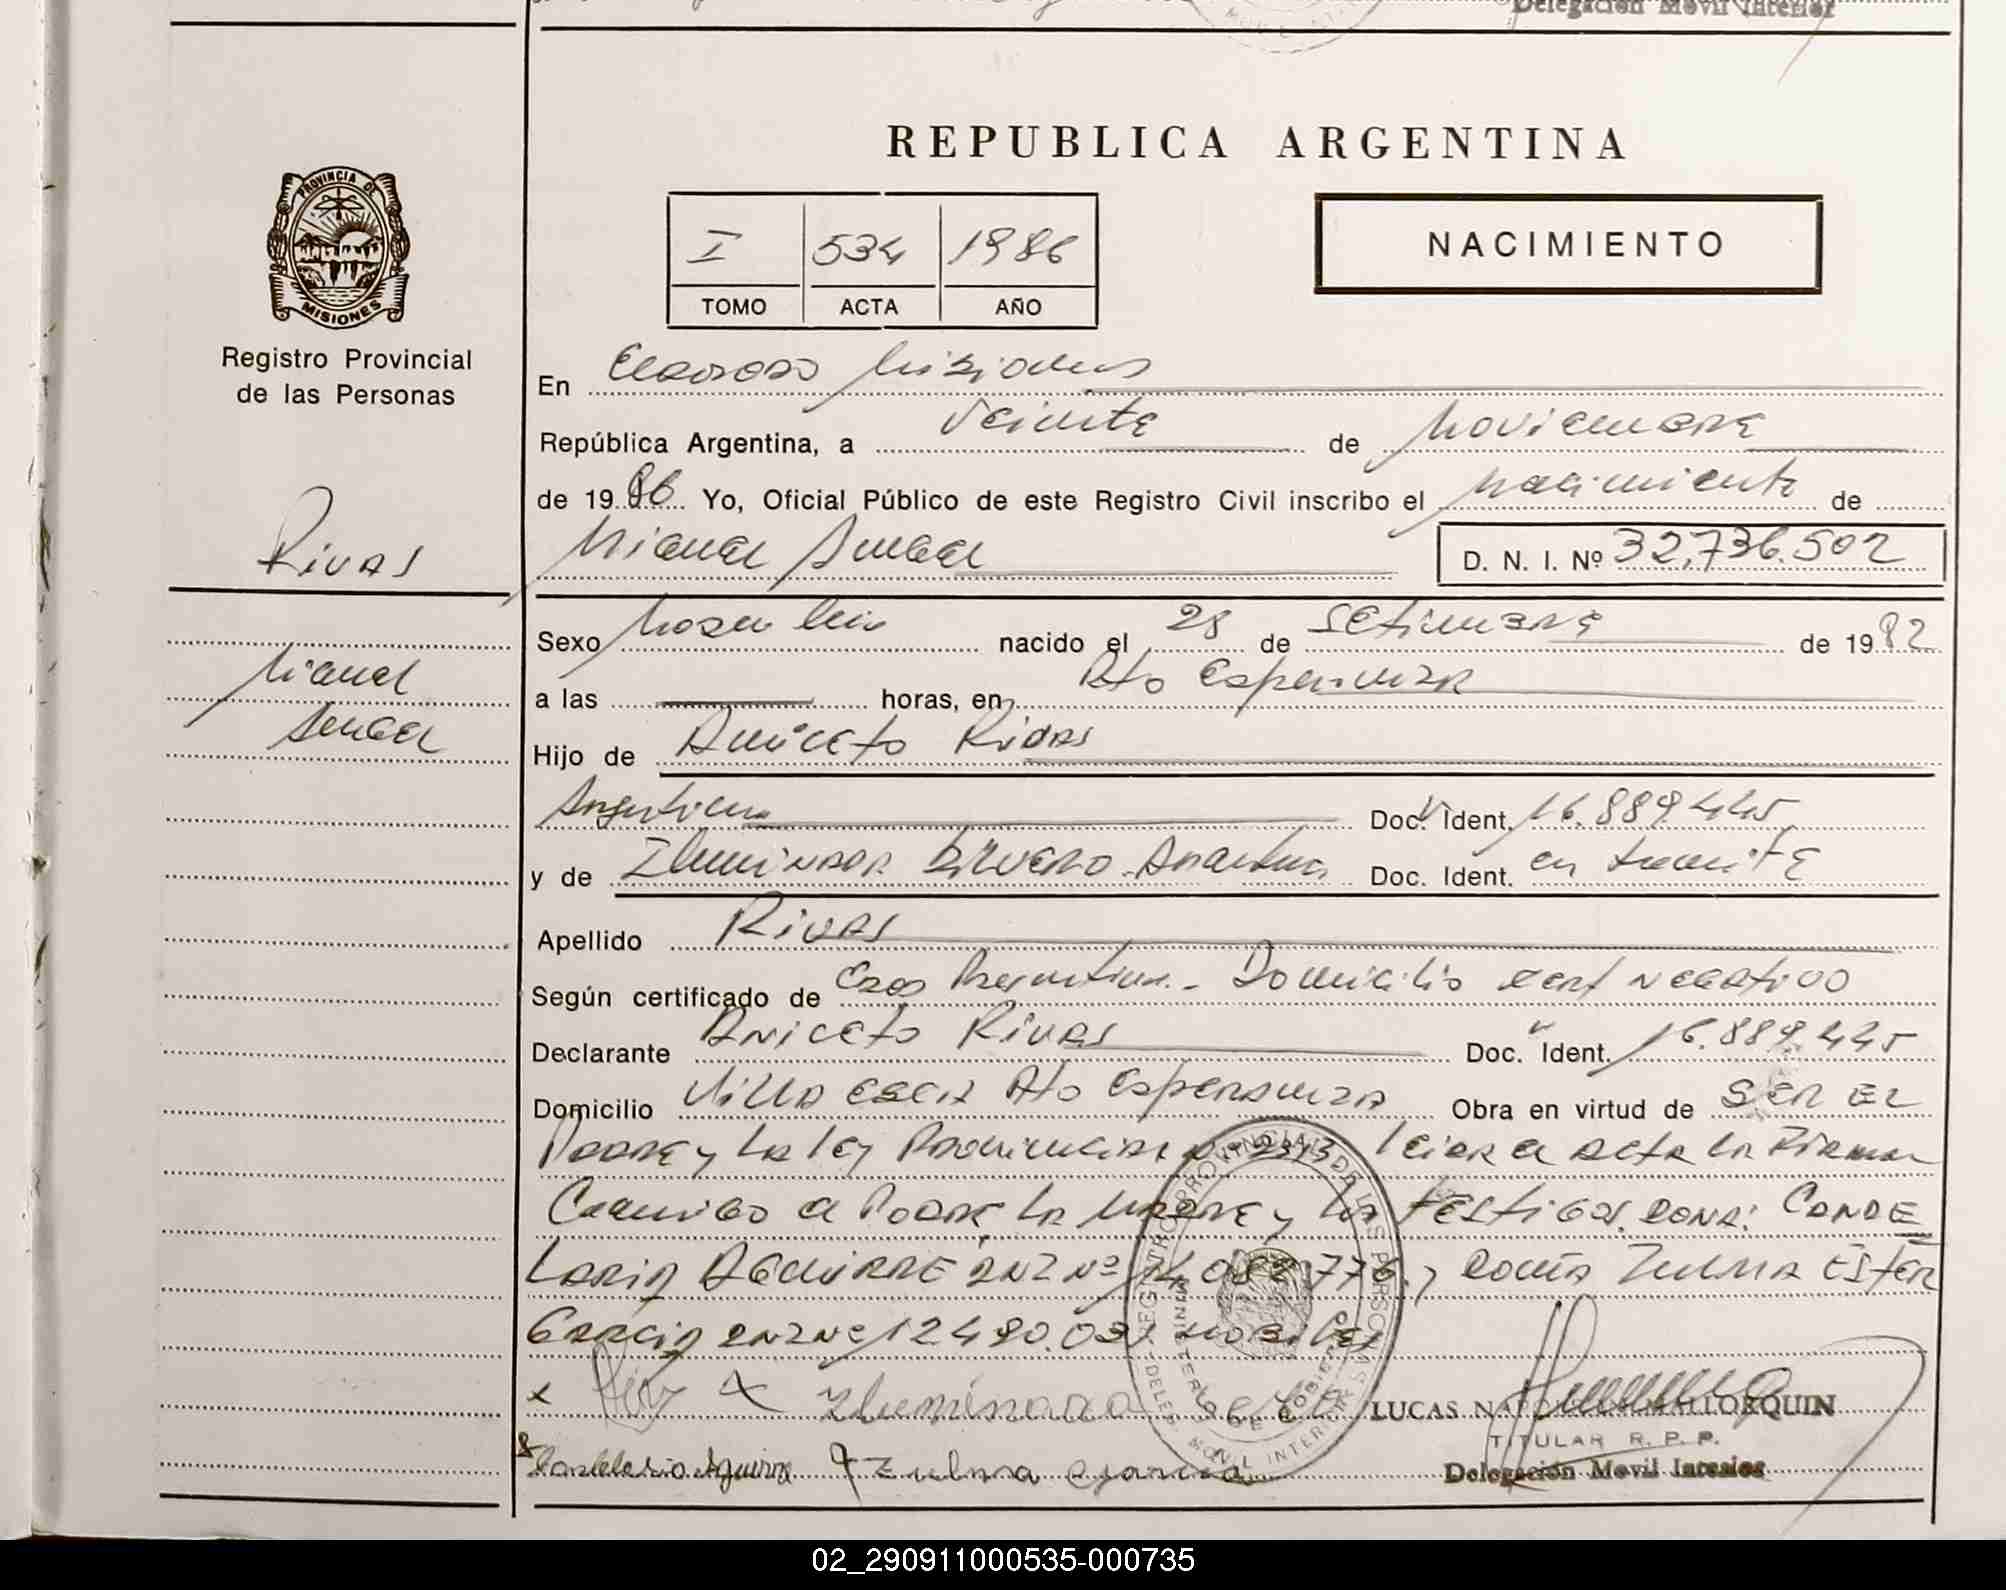 Delegación Movil Interior
REPUBLICA ARGENTINA
PROVINCIA DE
MISIONES
Registro Provincial
de las Personas
I 534 1986
TOMO ACTA AÑO
NACIMIENTO
En Eldorado Misiones
República Argentina, a Veinte de Noviembre
de 1986 Yo, Oficial Público de este Registro Civil inscribo el nacimiento de
Rivas
Miguel Angel D. N. I. Nº 32,736.502
Sexo Masculino nacido el 28 de Setiembre de 1982
Miguel
Angel
a las horas, en Pto Esperanza
Hijo de Aniceto Rivas
Argentino Doc. Ident. 16.889.445
y de Iluminada Argentina Doc. Ident. en tramite
Apellido Rivas
Según certificado de Domicilio negativo
Declarante Aniceto Rivas Doc. Ident. 16.889.445
Domicilio Villa Pto Esperanza Obra en virtud de SER EL
Padre y la ley Provincial Nº 2313 leida el acta la firman
Conmigo el Padre la Madre y los testigos Doña: CANDE
LARIA AGUIRRE DNI Nº 14.082.776 y Doña ZULMA ESTER
GARCIA DNI Nº 12480.031
x x Iluminada
LUCAS
TITULAR R. P. P.
Candelaria Aguirre Zulma Garcia
Delegación Movil Interior
REGISTRO PROVINCIAL DE LAS PERSONAS
DELEG. MOVIL INTERIOR
02_290911000535-000735